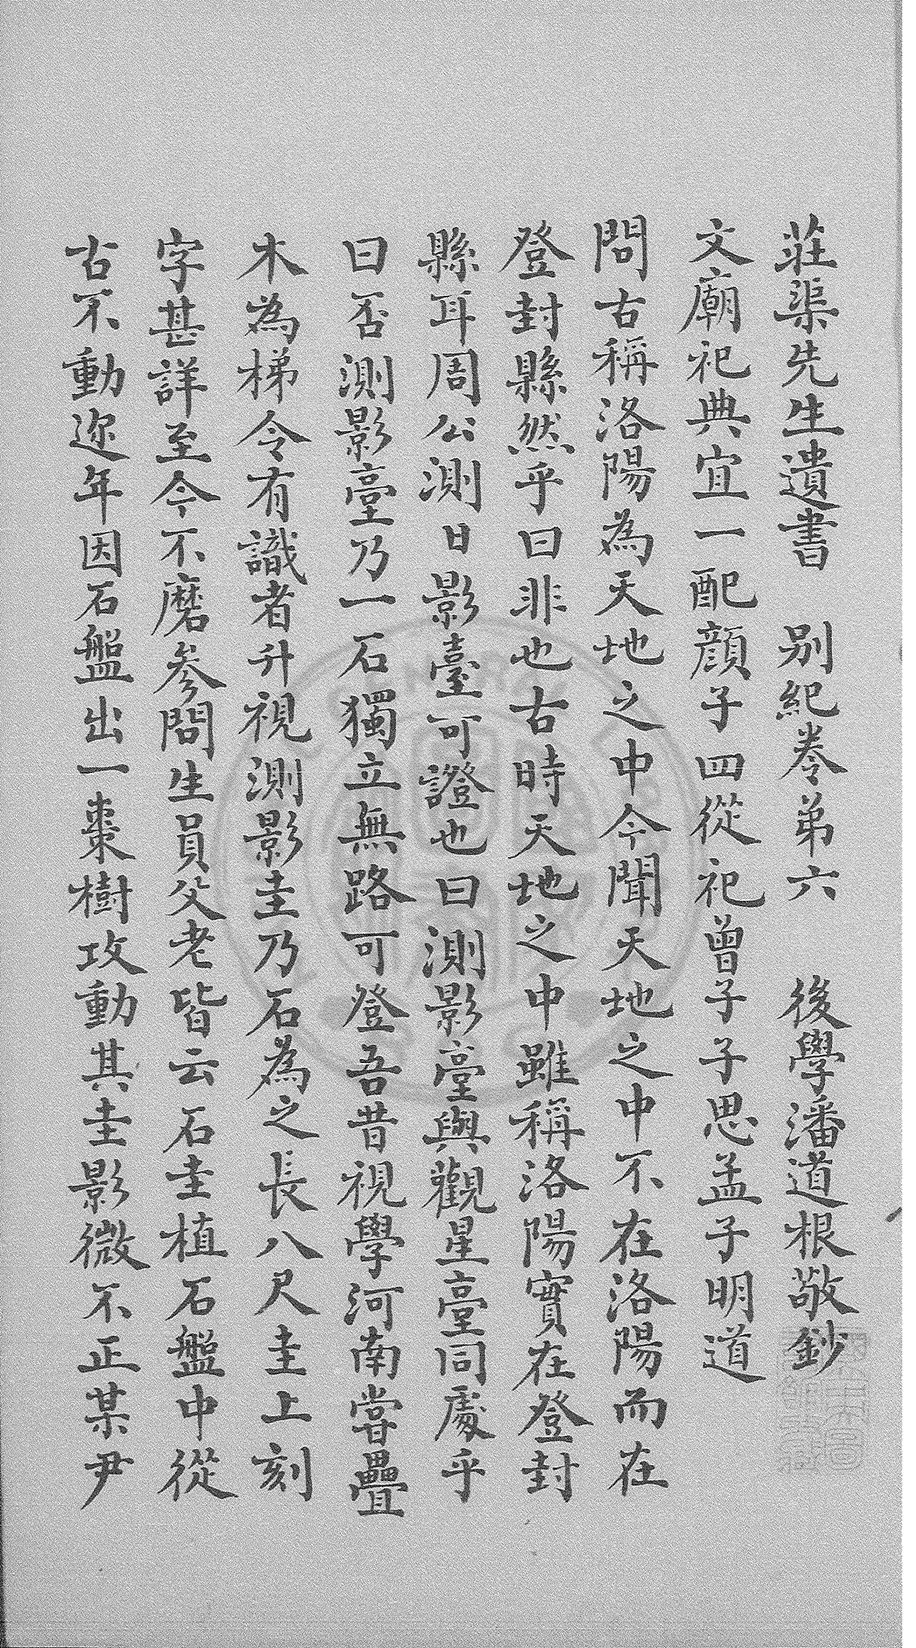 莊渠先生遺書　別紀卷第六　後學潘道根敬鈔
文廟祀典宜一配顏子四從祀曾子子思孟子明道
問古稱洛陽為天地之中今聞天地之中不在洛陽而在
登封縣然乎曰非也古時天地之中雖稱洛陽實在登封
縣耳周公測日影臺可證也曰測影臺與觀星臺同處乎
曰否測影臺乃一石獨立無路可登吾昔視學河南嘗疊
木為梯令有識者升視測影圭乃石為之長八尺圭上刻
字甚詳至今不磨參問生員父老皆云石圭植石盤中從
古不動迩年因石盤出一棗樹攻動其圭影微不正某尹